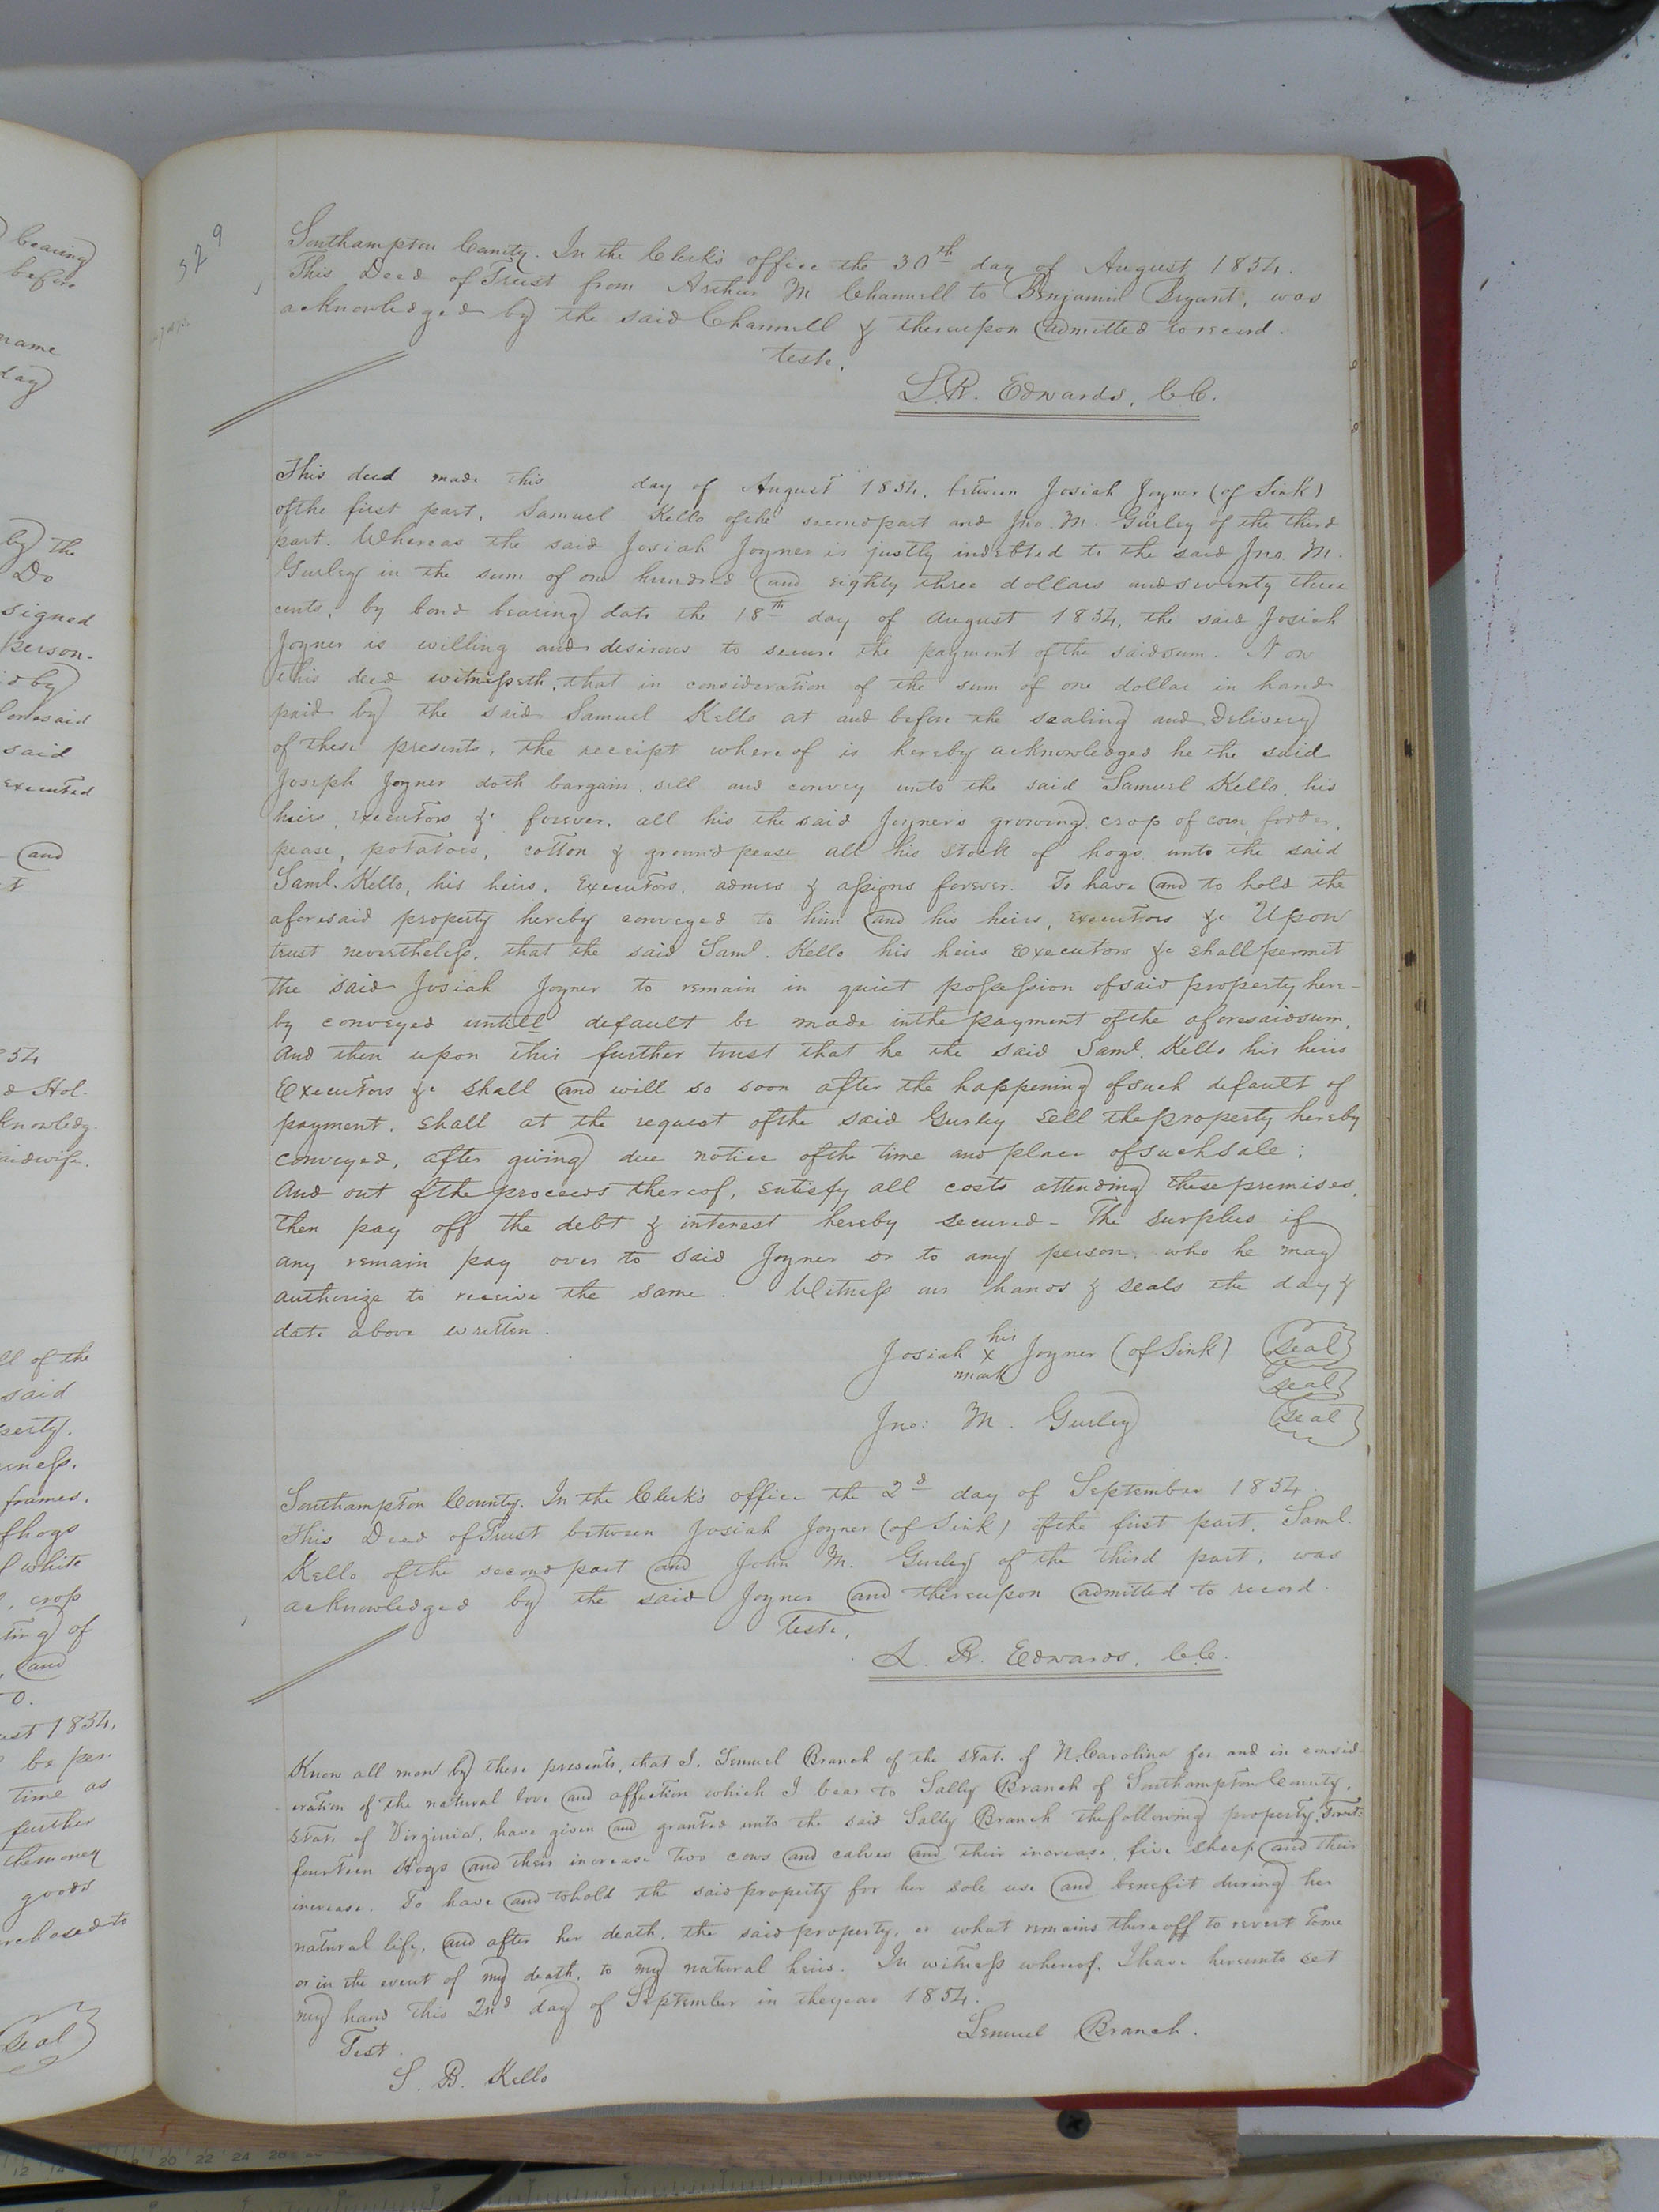 529
Southampton County. In the Clerk's office the 30th day of August 1854.
This Deed of Trust from Arthur M Channell to Benjamin Bryant, was
acknowledged by the said Channell & thereupon admitted to record.
Teste,
L.R. Edwards, C.C.
This deed made this day of August 1854, between Josiah Joyner (of Sink)
of the first part, Samuel Kello of the second part and Jno. M. Gurley of the third
part. Whereas the said Josiah Joyner is justly indebted to the said Jno. M.
Gurley in the sum of one hundred and eighty three dollars and seventy three
cents, by bond bearing date the 18th day of August 1854, the said Josiah
Joyner is willing and desirous to secure the payment of the said sum. Now
this deed witnesseth, that in consideration of the sum of one dollar in hand
paid by the said Samuel Kello at and before the sealing and delivery
of these presents, the receipt whereof is hereby acknowledged he the said
Joseph Joyner doth bargain, sell and convey unto the said Samuel Kello, his
heirs, executors &c forever, all his the said Joyner's growing crop of corn, fodder,
pease, potatoes, cotton & ground pease all his stock of hogs unto the said
Saml. Kello, his heirs, Executors, admrs & assigns forever. To have and to hold the
aforesaid property hereby conveyed to him and his heirs, executors &c Upon
trust nevertheless, that the said Saml. Kello his heirs Executors &c shall permit
the said Josiah Joyner to remain in quiet possession of said property here-
by conveyed untill default be made in the payment of the aforesaid sum,
And then upon this further trust that he the said Saml. Kello his heirs
Executors &c shall and will so soon after the happening of such default of
payment, shall at the request of the said Gurley sell the property hereby
conveyed, after giving due notice of the time and place of such sale;
And out of the proceeds thereof, satisfy all costs attending these premises,
then pay off the debt & interest hereby secured - The surplus if
any remain pay over to said Joyner or to any person, who he may
authorize to receive the same. Witness our hands & seals the day &
date above written.
his
Josiah x Joyner (of Sink) seal
mark
seal
Jno: M. Gurley seal
Southampton County. In the Clerk's office the 2d day of September 1854.
This Deed of Trust between Josiah Joyner (of Sink) of the first part, Saml.
Kello of the second part and John M. Gurley of the third part, was
acknowledged by the said Joyner and thereupon admitted to record.
Teste,
L. R. Edwards, C.C.
Know all men by these presents, that I, Lemuel Branch of the State of N. Carolina for and in consid-
eration of the natural love and affection which I bear to Sally Branch of Southampton County,
State of Virginia, have given and granted unto the said Sally Branch the following property, towit:
fourteen Hogs and their increase two cows and calves and their increase, five sheep and their
increase. To have and to hold the said property for her sole use and benefit during her
natural life, and after her death, the said property, or what remains there off to revert to me
or in the event of my death, to my natural heirs. In witness whereof, I have hereunto set
my hand this 2nd day of September in the year 1854.
Lemuel Branch.
Test.
S. B. Kello